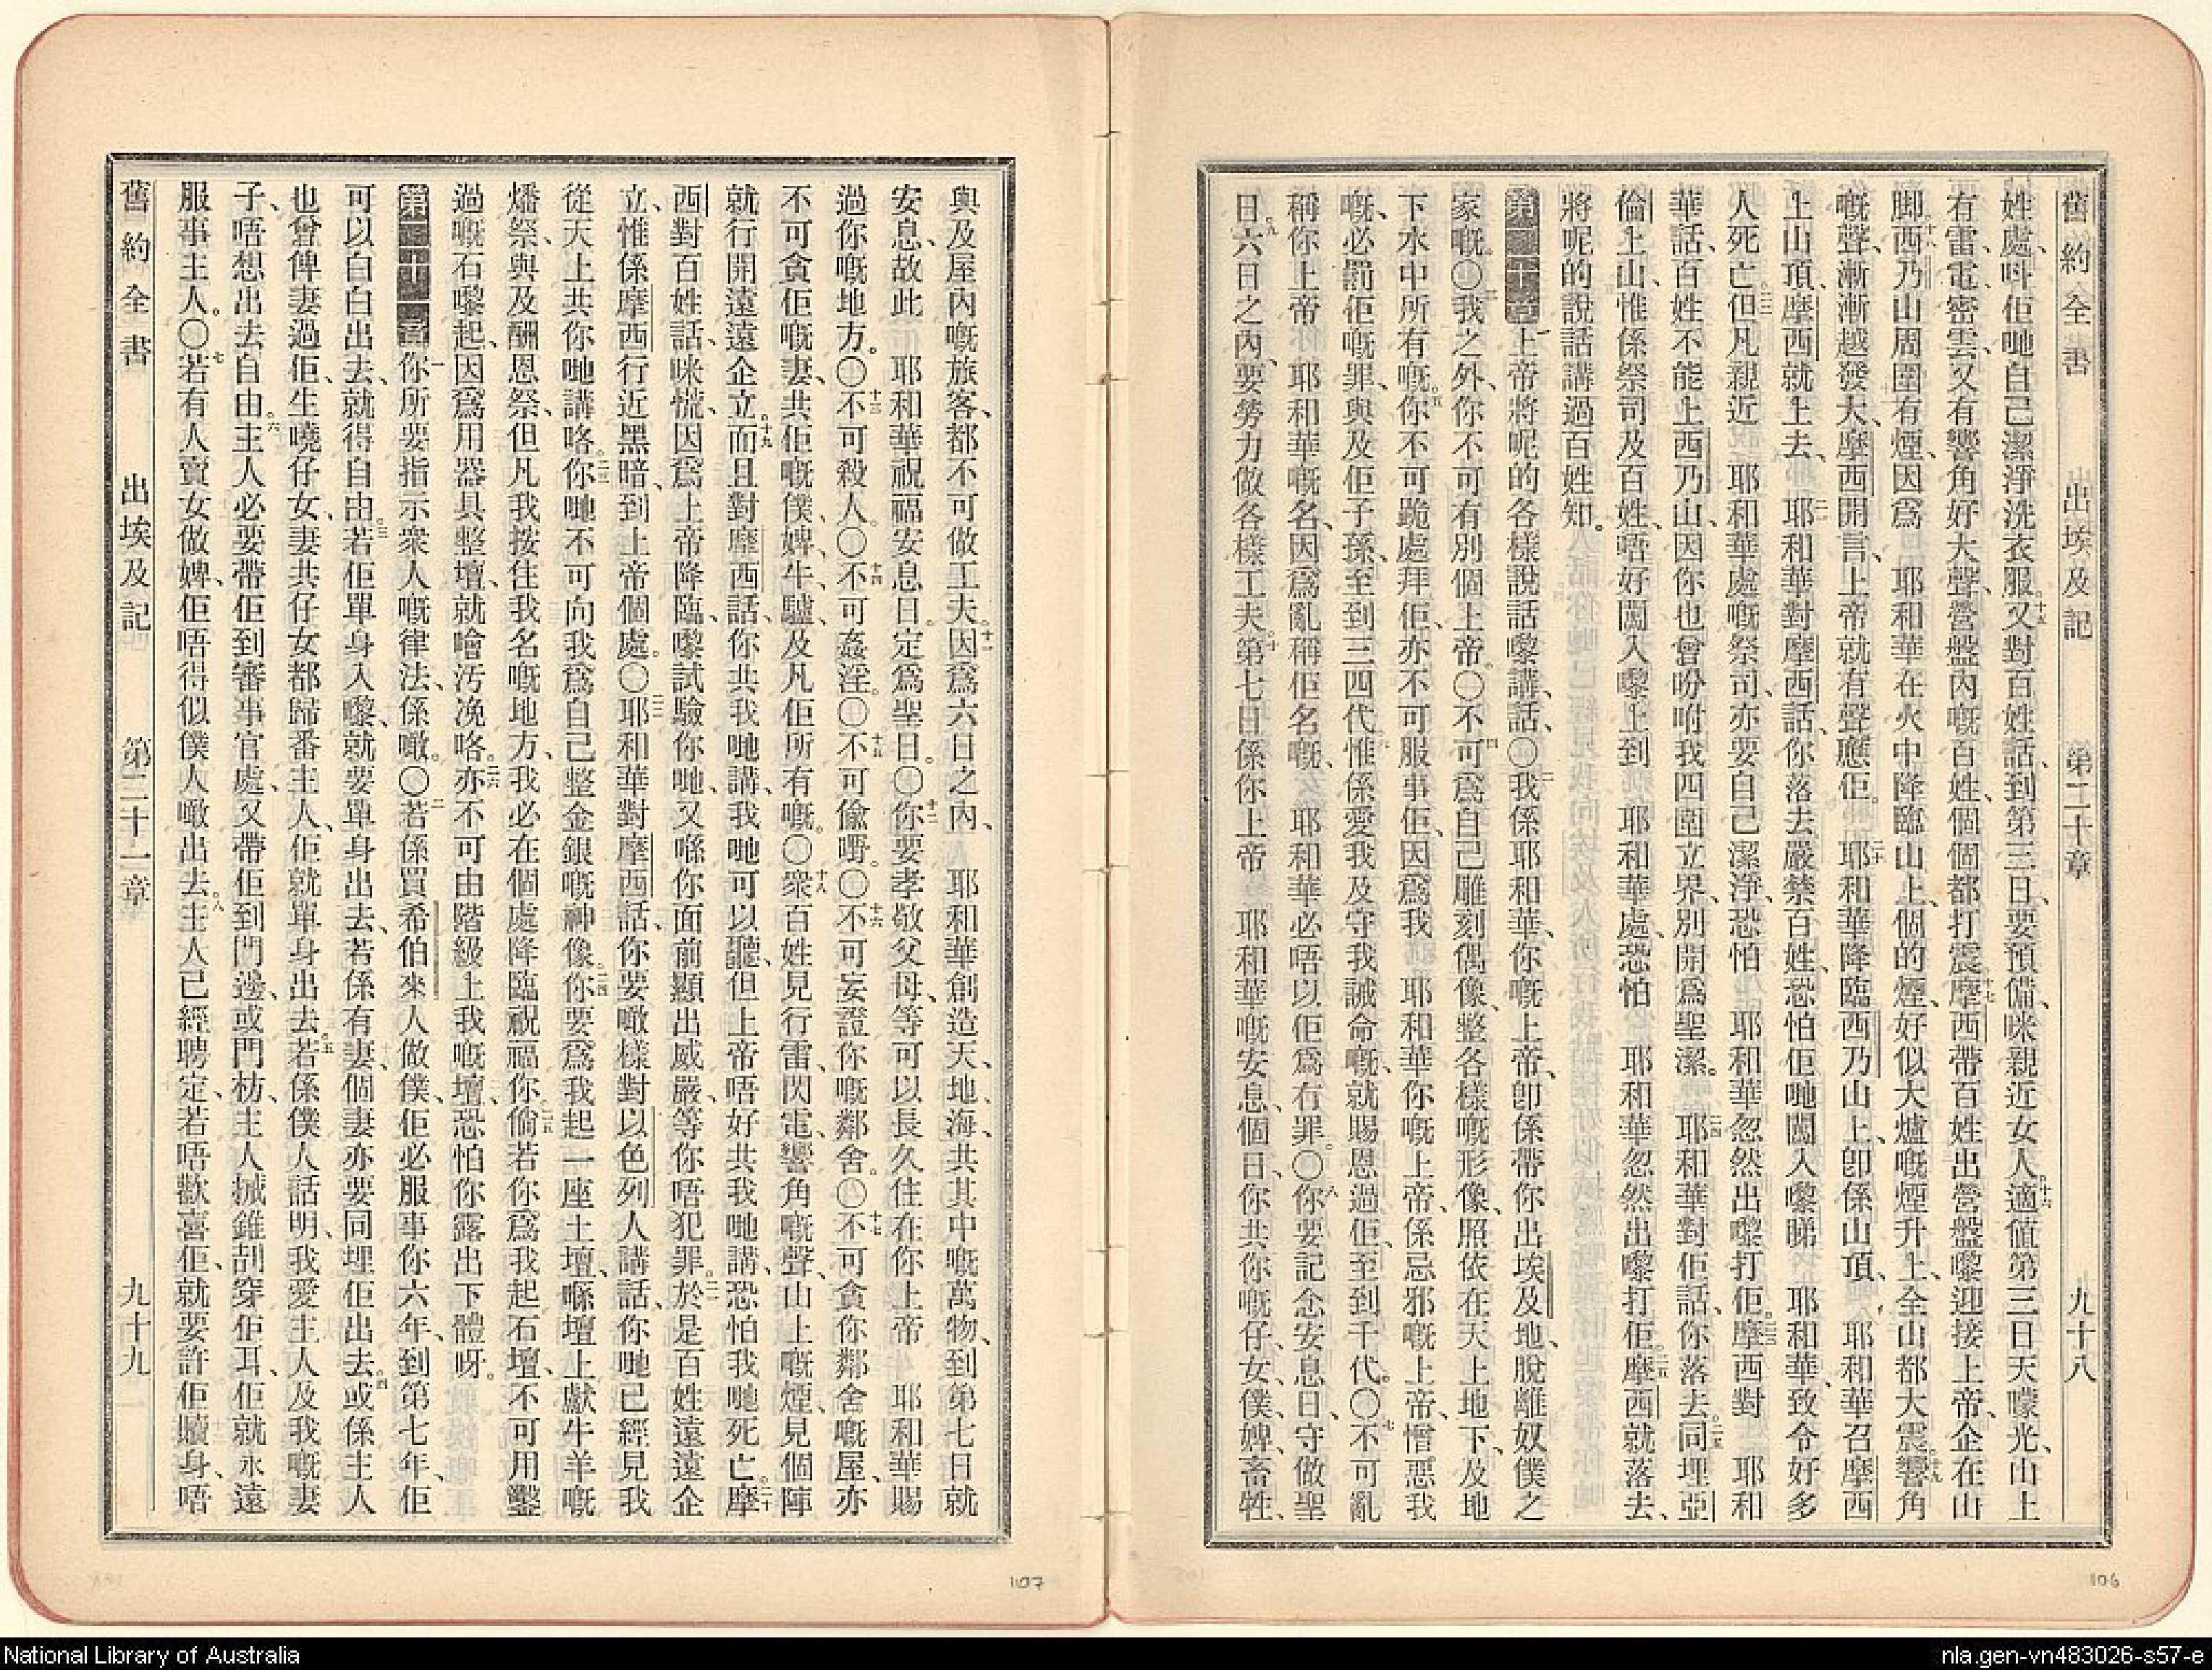 舊約全書 出埃及記 第二十章 九十八
姓處、呌佢哋自己潔淨洗衣服。十五又對百姓話、到第三日、要預備、咪親近女人。十六適值第三日天曚光、山上
有雷、電、密雲、又有響角好大聲、營盤內嘅百姓、個個都打震。十七摩西帶百姓出營盤嚟迎接上帝、企在山
脚。十八西乃山周圍有煙、因爲 耶和華在火中降臨山上、個的煙、好似大爐嘅煙升上、全山都大震。十九響角
嘅聲、漸漸越發大、摩西開言、上帝就有聲應佢。二十耶和華降臨西乃山上、卽係山頂、 耶和華召摩西
上山頂、摩西就上去、二一耶和華對摩西話、你落去嚴禁百姓、恐怕佢哋闖入嚟睇 耶和華、致令好多
人死亡。二二但凡親近 耶和華處嘅祭司、亦要自己潔淨、恐怕 耶和華忽然出嚟打佢。二三摩西對 耶和
華話、百姓不能上西乃山、因你也曾吩咐我四圍立界、別開爲聖潔。二四耶和華對佢話、你落去。同埋亞
倫上山、惟係祭司及百姓、唔好闖入嚟上到 耶和華處、恐怕 耶和華忽然出嚟打佢。二五摩西就落去、
將呢的說話講過百姓知。
第二十章 一上帝將呢的各樣說話嚟講、話、〇二我係耶和華、你嘅上帝、卽係帶你出埃及地、脫離奴僕之
家嘅。〇三我之外、你不可有別個上帝。〇四不可爲自己雕刻偶像、整各樣嘅形像、照依在天上地下、及地
下水中所有嘅。五你不可跪處拜佢、亦不可服事佢、因爲我 耶和華你嘅上帝、係忌邪嘅上帝、憎惡我
嘅、必罰佢嘅罪、與及佢子孫、至到三四代。六惟係愛我及守我誡命嘅、就賜恩過佢、至到千代。〇七不可亂
稱你上帝 耶和華嘅名、因爲亂稱佢名嘅、 耶和華必唔以佢爲冇罪。〇八你要記念安息日、守做聖
日。九六日之內、要勞力做各樣工夫。十第七日係你上帝 耶和華嘅安息、個日、你共你嘅仔、女、僕、婢、畜牲、
與及屋內嘅旅客、都不可做工夫。十一因爲六日之內、 耶和華創造天、地、海、共其中嘅萬物、到第七日就
安息、故此 耶和華祝福安息日。定爲聖日。〇十二你要孝敬父母、等可以長久住在你上帝 耶和華賜
過你嘅地方。〇十三不可殺人。〇十四不可姦淫。〇十五不可偸嘢。〇十六不可妄證你嘅鄰舍。〇十七不可貪你鄰舍嘅屋、亦
不可貪佢嘅妻、共佢嘅僕、婢、牛、驢、及凡佢所有嘅。〇十八衆百姓見行雷、閃電、響角嘅聲、山上嘅煙、見個陣
就行開遠遠企立。十九而且對摩西話、你共我哋講、我哋可以聽、但上帝唔好共我哋講、恐怕我哋死亡。二十摩
西對百姓話、咪慌、因爲上帝降臨、嚟試驗你哋、又喺你面前顯出威嚴、等你唔犯罪。二一於是百姓遠遠企
立、惟係摩西行近黑暗、到上帝個處。〇二二耶和華對摩西話、你要噉樣對以色列人講話、你哋已經見我
從天上共你哋講咯。二三你哋不可向我爲自己整金銀嘅神像。二四你要爲我起一座土壇、喺壇上獻牛羊嘅
燔祭、與及酬恩祭、但凡我按住我名嘅地方、我必在個處降臨祝福你。二五倘若你爲我起石壇、不可用鑿
過嘅石嚟起、因爲用器具整壇、就噲汚浼咯。二六亦不可由階級上我嘅壇、恐怕你露出下體呀。
第二十一章 一你所要指示衆人嘅律法、係噉。〇二若係買希伯來人做僕、佢必服事你六年、到第七年、佢
可以白白出去、就得自由。三若佢單身入嚟、就要單身出去、若係有妻、個妻亦要同埋佢出去。四或係主人
也曾俾妻過佢、生嘵仔女、妻共仔女都歸番主人、佢就單身出去。五若係僕人話明、我愛主人及我嘅妻
子、唔想出去自由。六主人必要帶佢到審事官處、又帶佢到門邊、或門枋、主人揻錐𠝹穿佢耳、佢就永遠
服事主人。〇七若有人賣女做婢、佢唔得似僕人噉出去。八主人已經聘定、若唔歡喜佢、就要許佢贖身、唔
舊約全書 出埃及記 第二十一章 九十九
107
106
National Library of Australia
nla.gen-vn483026-s57-e